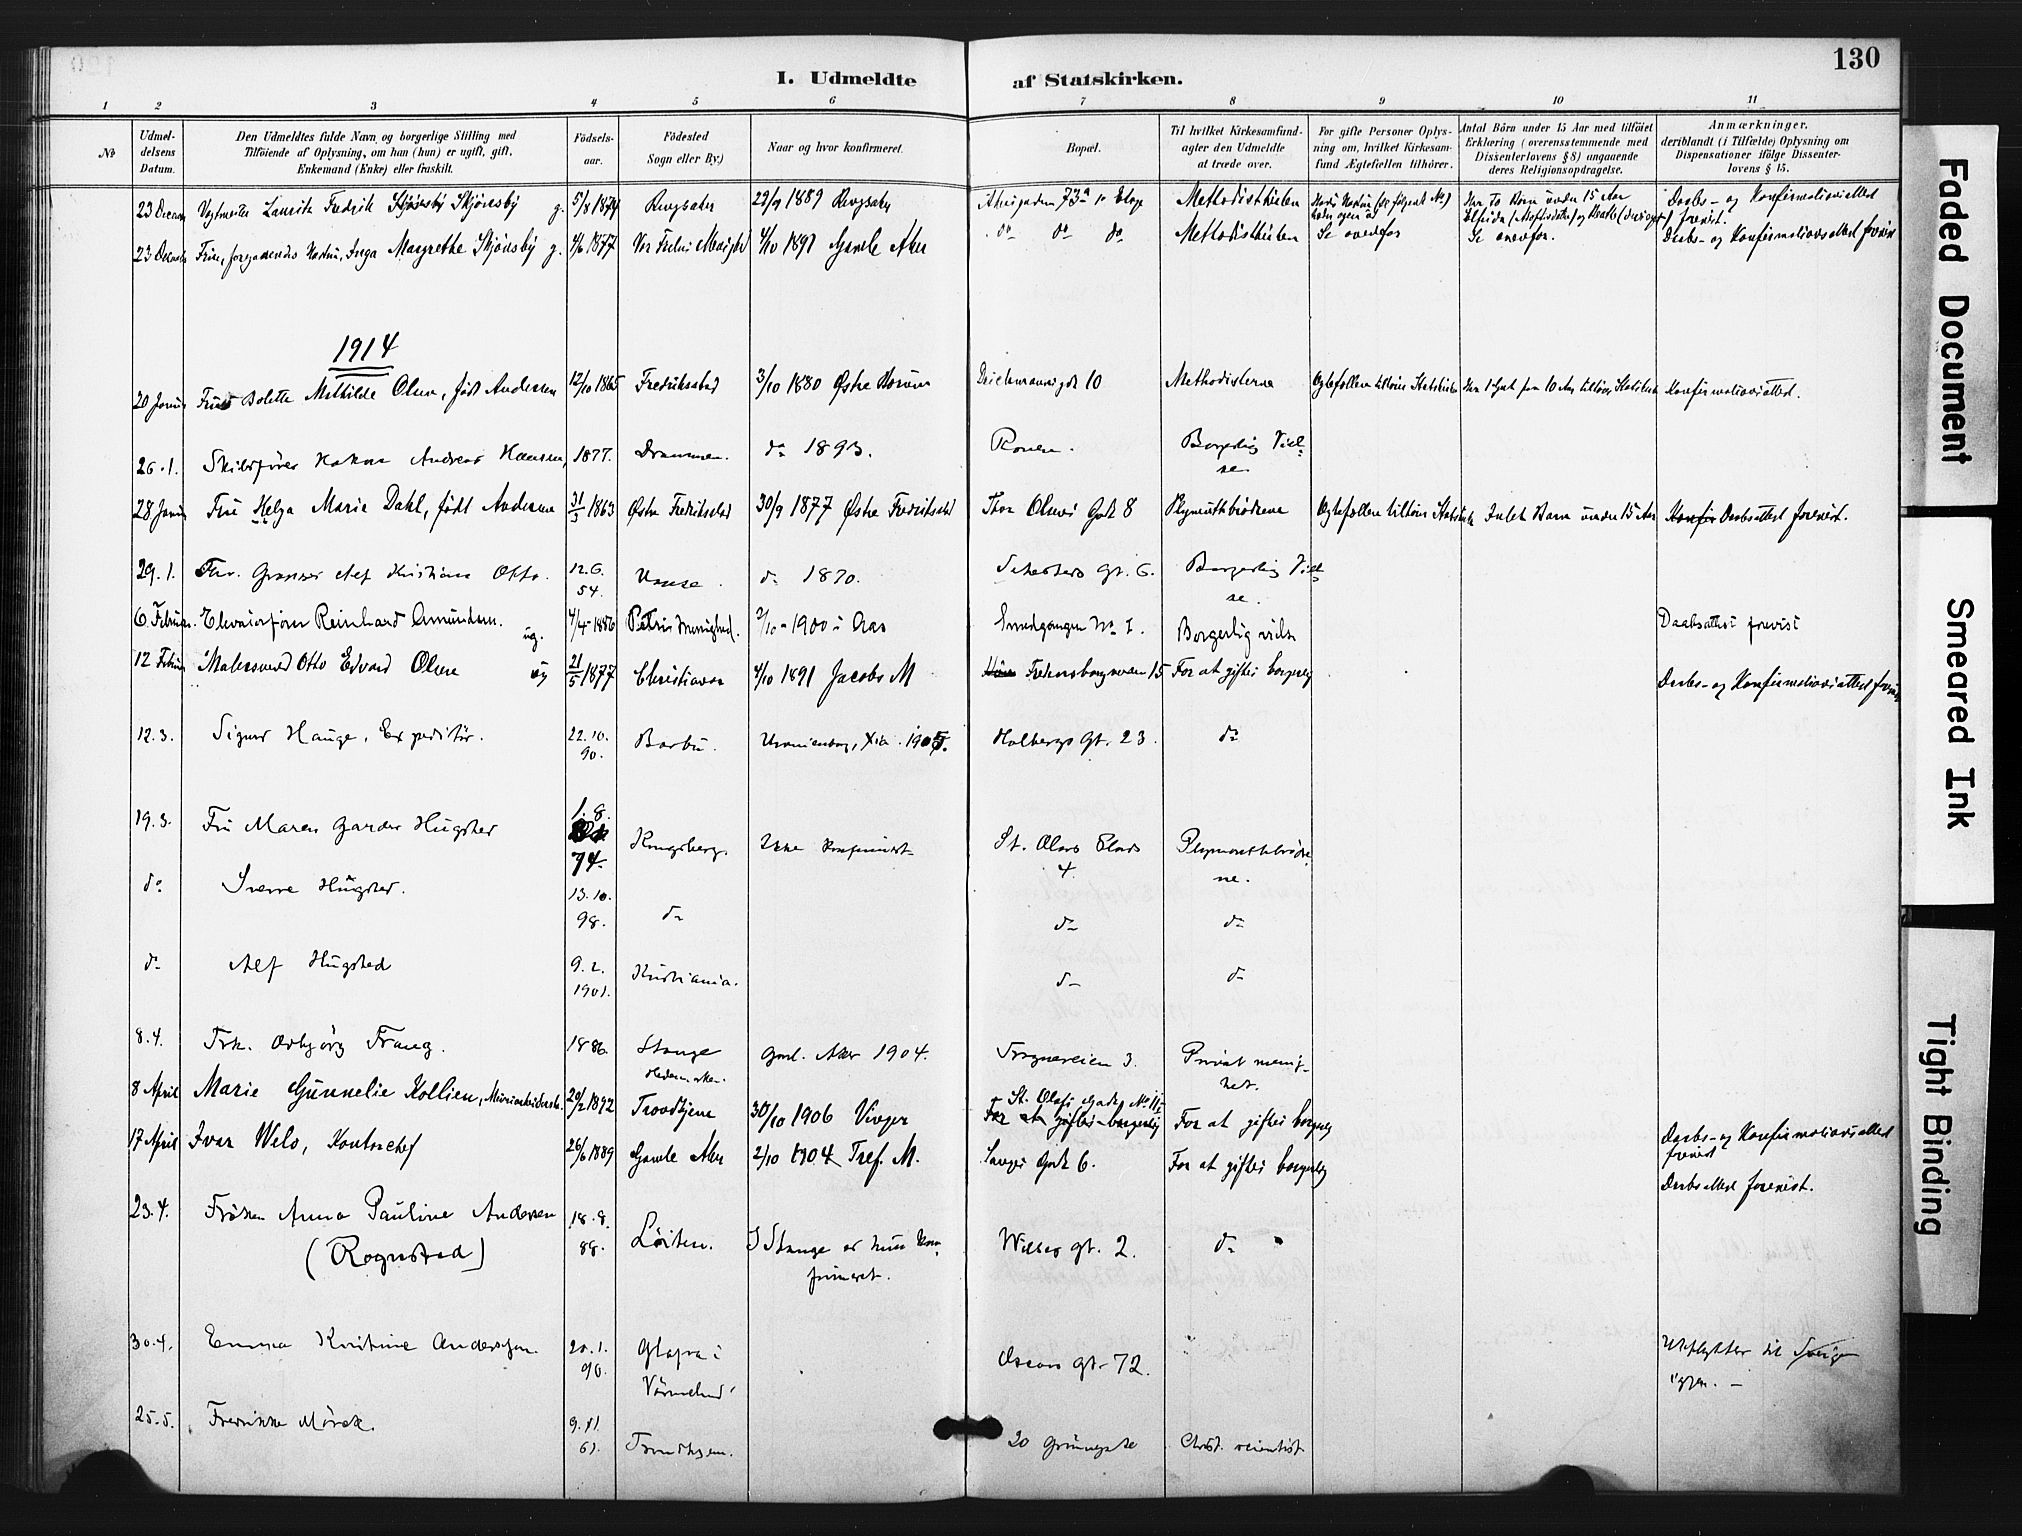 130
I. Udmeldte af Statskirken.
1 2 3 4 5 6 7 8 9 10 11
№
Udmeldelsens Datum.
Den Udmeldtes fulde Navn og borgerlige Stilling med
Tilføiende af Oplysning, om han (hun) er ugift, gift,
Enkemand (Enke) eller fraskilt.
Fødselsaar.
Fødested
Sogn eller By.)
Naar og hvor konfirmeret.
Bopæl.
Til hvilket Kirkesamfund-
agter den Udmeldte
at træde over.
For gifte Personer Oplys-
ning om, hvilket Kirkesam-
fund Ægtefællen tilhører.
Antal Børn under 15 Aar med tilføiet
Erklæring (overensstemmende med
Dissenterlovens § 8) angaaende
deres Religionsopdragelse.
Anmærkninger,
deriblandt (i Tilfælde) Oplysning om
Dispensationer ifølge Dissenter-
lovens § 15.
23 Lauritz Fredrik Skjønsby g. 5/8 1874 Ringsaker 29/9 1889 Ringsaker 73 a Methodistkirken
Daabs- og Konfirmationsattest
forevist.
23 Inga Margrethe Skjønsby g. 4/6 1877 1891 Gamle Aker do do do Methodistkirken Se ovenfor Se ovenfor. Daabs- og Konfirmationsattest forevist
1914
20 Januar Fru Bolette Mathilde Olsen, født Andersen 12/10 1865 Fredriksstad 3/10 1880 Østre 10 Methodisterne Ægtefællen tilhører Statskirken Konfirmationsattest.
26.1. Skibsfører Hakon Andreas Hansen, 1877. Drammen. do 1893. Rouen. Borgerlig Viel-
se.
28 Januar Fru Helga Marie Dahl, født Andersen 31/3 1863 Østre Fredrikstad 30/9 1877 Østre Fredrikstad Thor Olsens Gade 8 Plymuthbrødrene Ægtefællen tilhører Statskirken Intet Barn under 15 Aar Konfir Daabsattest forevist.
29.1. Kristian Otto. 12.6.
54. do 1870. Gt. 6. Borgerlig Viel-
se.
6 Februar Reinhard Amundsen. ug. 4/4 1886 Petrus Menighed. 1/10 1900 i Aas No 1. Borgerlig vielse Daabsattest forevist
12 Februar Malersvend Otto Edvard Olsen ug 21/5 1877 Christiania 4/10 1891 Jacobs M Fredensborgveien 15 For at giftes borgerlig
Daabs- og Konfirmationsattest forevist
12.3. Signe Hauge, Expeditør. 22.10.
90. Barbu. Uranienborg, Xia. 1905. Holbergs Gt. 23. do
19.3. Fru Maren Hugsted 1.8.
74. Kongsberg. Ikke konfirmeret St. Olavs Plads
4. Plymouthbrødre-
ne.
do Sverre Hugsted. 13.10.
98. do do do
do Alf Hugsted 9.2.
1901. Kristiania. do do
8.4. Frk. Asbjørg Frang. 1886. Stange
Hedemarken. Gml. Aker 1904. Sognsveien 3. Privat menig-
het.
8 April Marie Gunnelie Kollien, 20/2 1892 Trondhjem 30/10 1906 Vinger St. Olafs Gade No 11
For at giftes borgerlig For at giftes borgerlig
17 April Ivar Wels, Kontorchef 26/6 1889 Gamle Aker 2/10 1904 Tref. M. Langes Gade 6. For at giftes borgerlig Daabs- og Konfirmationsattest
forevist
Daabsattest forevist.
23.4. Frøken Anna Pauline Andersen
(Rognstad) 18.8.
88. Løiten. I Stange er hun kon-
firmeret. Wilses gt. 2. do
30.4. Emma Kristine Andersson. 20.1.
90. Glafva i
Värmland Oscars gt. 72. Utflytter til Sverige
igjen. —
25.5. Fredrikke Mørck. 9.11.
61. Trondhjem. 20 Grünergate Christ. scientist
Faded Document
Smeared Ink
Tight Binding